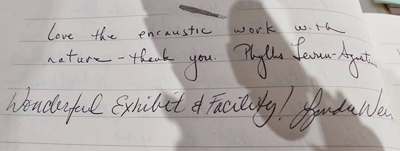 Love the encaustic work with
nature - thank you. Phyllis
Wonderful Exhibit & Facility! Lynda